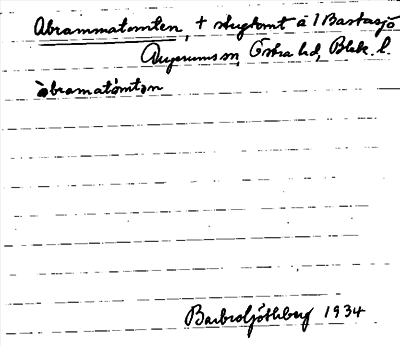 Abrammatomten, + stugtomt å 1 Bastasjö
Augerums sn, Östra hd, Blek. l.
àbramatómtən
Barbro Göthberg 1934